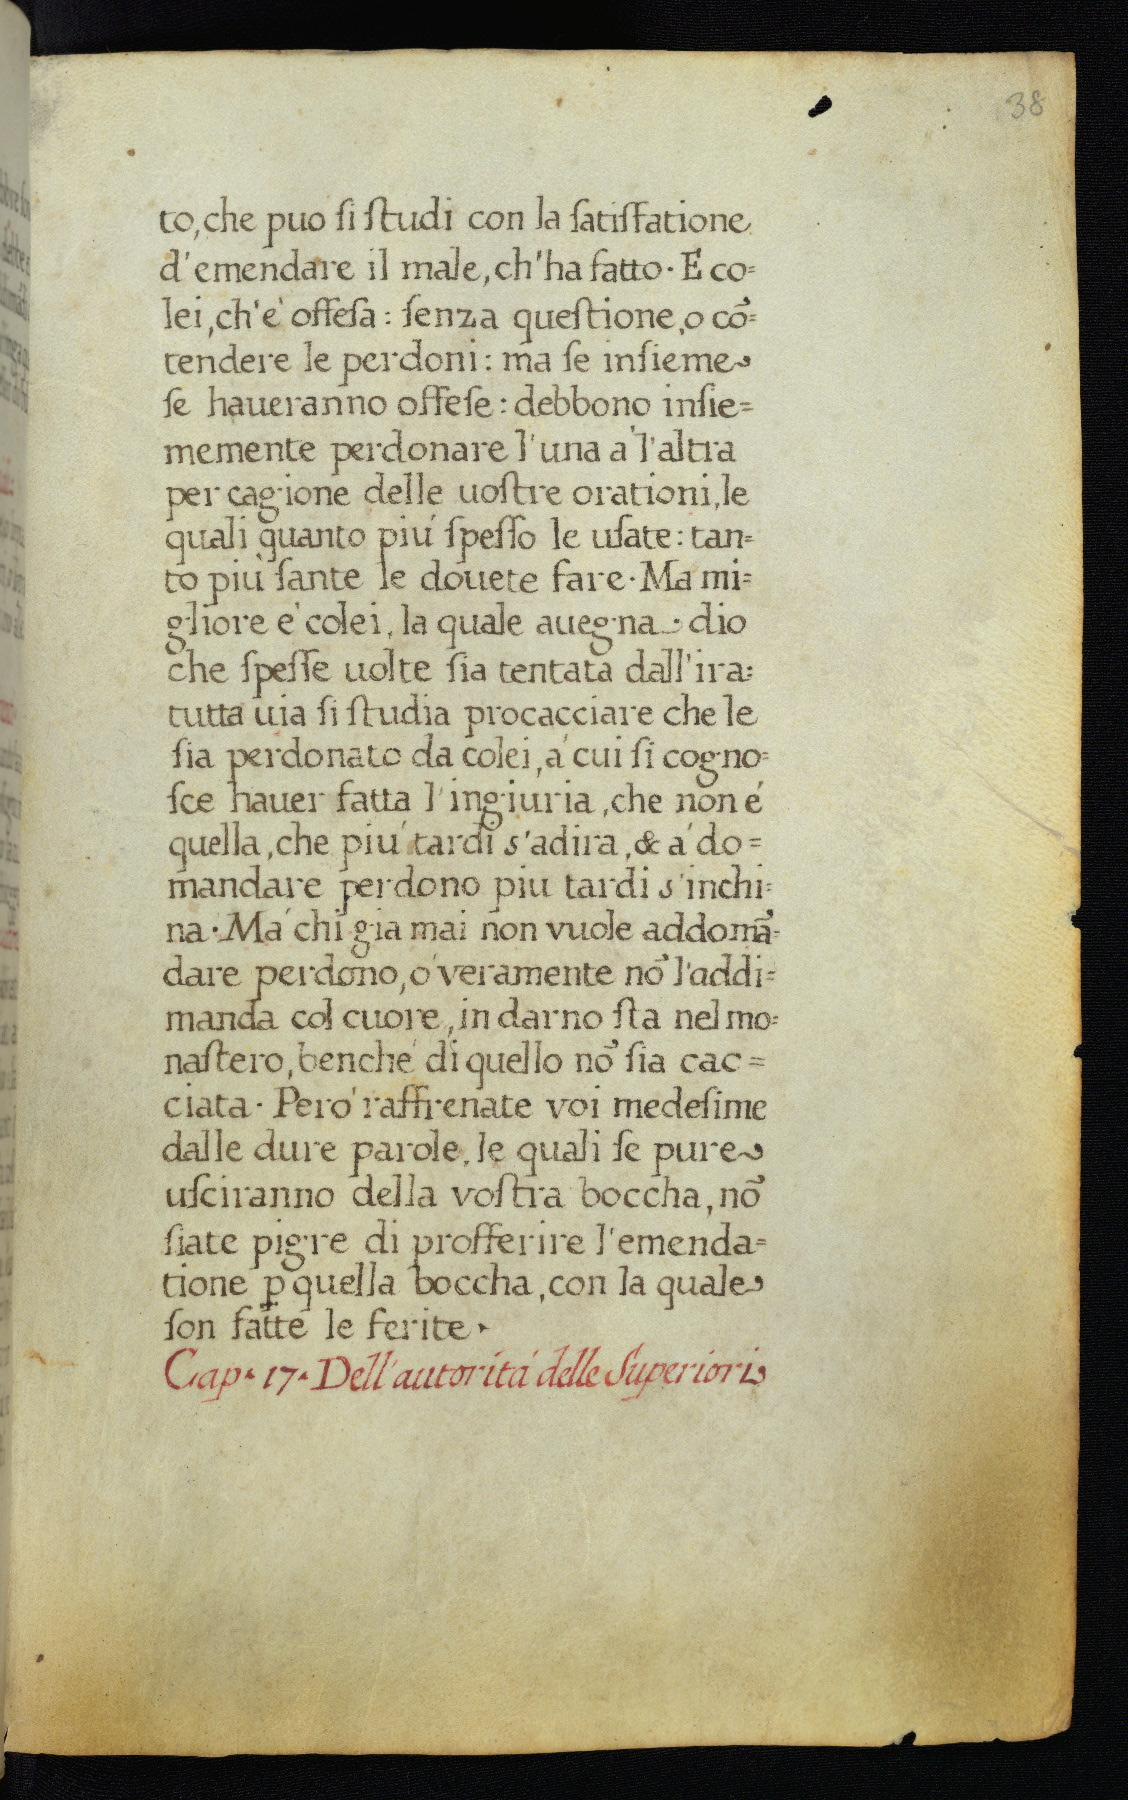 38
to, che puo si studi con la satisfatione
d'emendare il male, ch'ha fatto. E co=
lei, ch'è offesa: senza questione, o cõ=
tendere le perdoni: ma se insieme
se haueranno offese: debbono insie=
memente perdonare l'una a l'altra
per cagione delle uostre orationi, le
quali quanto piú spesso le usate: tan=
to piú sante le douete fare. Ma mi=
gliore è colei, la quale auegna dio
che spesse uolte sia tentata dall'ira:
tutta uia si studia procacciare che le
sia perdonato da colei, á cui si cogno=
sce hauer fatta l'ingiuria, che non é
quella, che piú tardi s'adira, & á do=
mandare perdono piu tardi s'inchi=
na. Má chi gia mai non vuole addomã=
dare perdono, ó veramente nõ l'addi=
manda col cuore, in darno sta nel mo=
nastero, benché di quello nõ sia cac=
ciata. Peró raffrenate voi medesime
dalle dure parole, le quali se pure
usciranno della vostra boccha, nõ
siate pigre di profferire l'emenda=
tione ꝑ quella boccha, con la quale
son fatte le ferite.
Cap. 17. Dell'autoritá delle Superiori